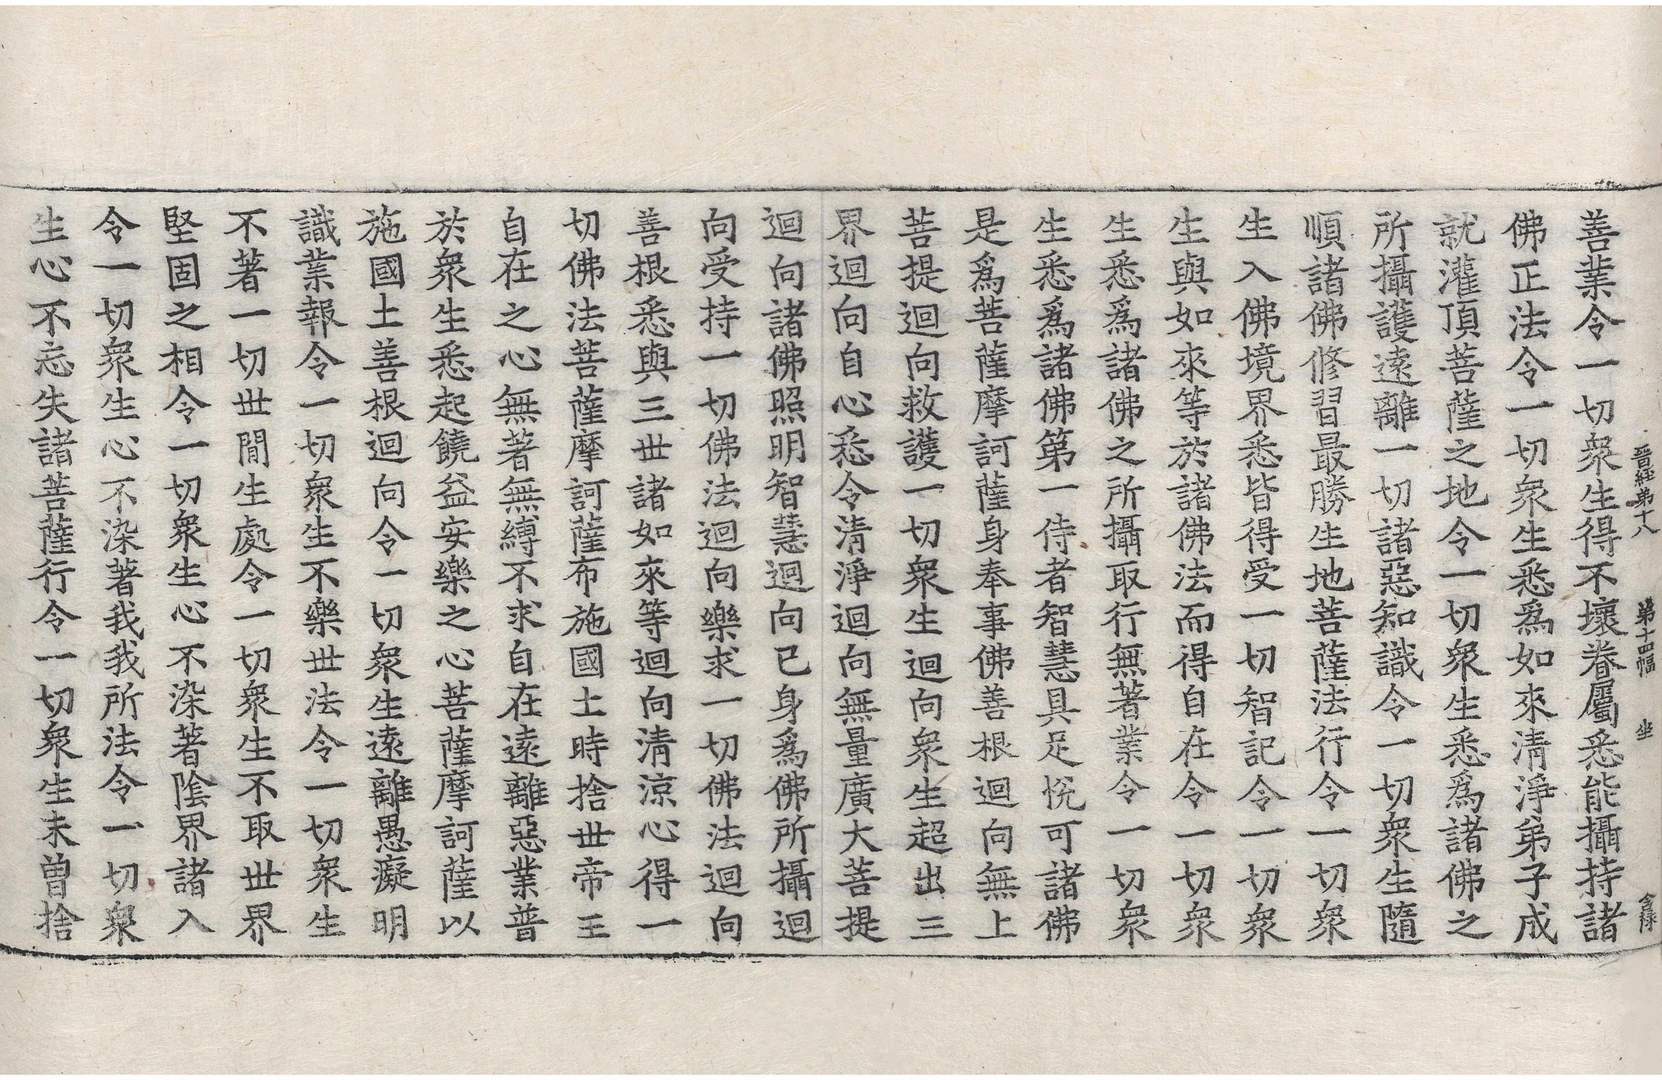 晉經第十八 第十四幅 坐 金祿
善業令一切衆生得不壞眷屬悉能攝持諸
佛正法令一切衆生悉爲如來清淨弟子成
就灌頂菩薩之地令一切衆生悉爲諸佛之
所攝護遠離一切諸惡知識令一切衆生隨
順諸佛修習最勝生地菩薩法行令一切衆
生入佛境界悉皆得受一切智記令一切衆
生與如來等於諸佛法而得自在令一切衆
生悉爲諸佛之所攝取行無著業令一切衆
生悉爲諸佛第一侍者智慧具足悅可諸佛
是爲菩薩摩訶薩身奉事佛善根迴向無上
菩提迴向救護一切衆生迴向衆生超出三
界迴向自心悉令清淨迴向無量廣大菩提
迴向諸佛照明智慧迴向己身爲佛所攝迴
向受持一切佛法迴向樂求一切佛法迴向
善根悉與三世諸如來等迴向清涼心得一
切佛法菩薩摩訶薩布施國土時捨世帝王
自在之心無著無縛不求自在遠離惡業普
於衆生悉起饒益安樂之心菩薩摩訶薩以
施國土善根迴向令一切衆生遠離愚癡明
識業報令一切衆生不樂世法令一切衆生
不著一切世間生處令一切衆生不取世界
堅固之相令一切衆生心不染著陰界諸入
令一切衆生心不染著我我所法令一切衆
生心不忘失諸菩薩行令一切衆生未曾捨